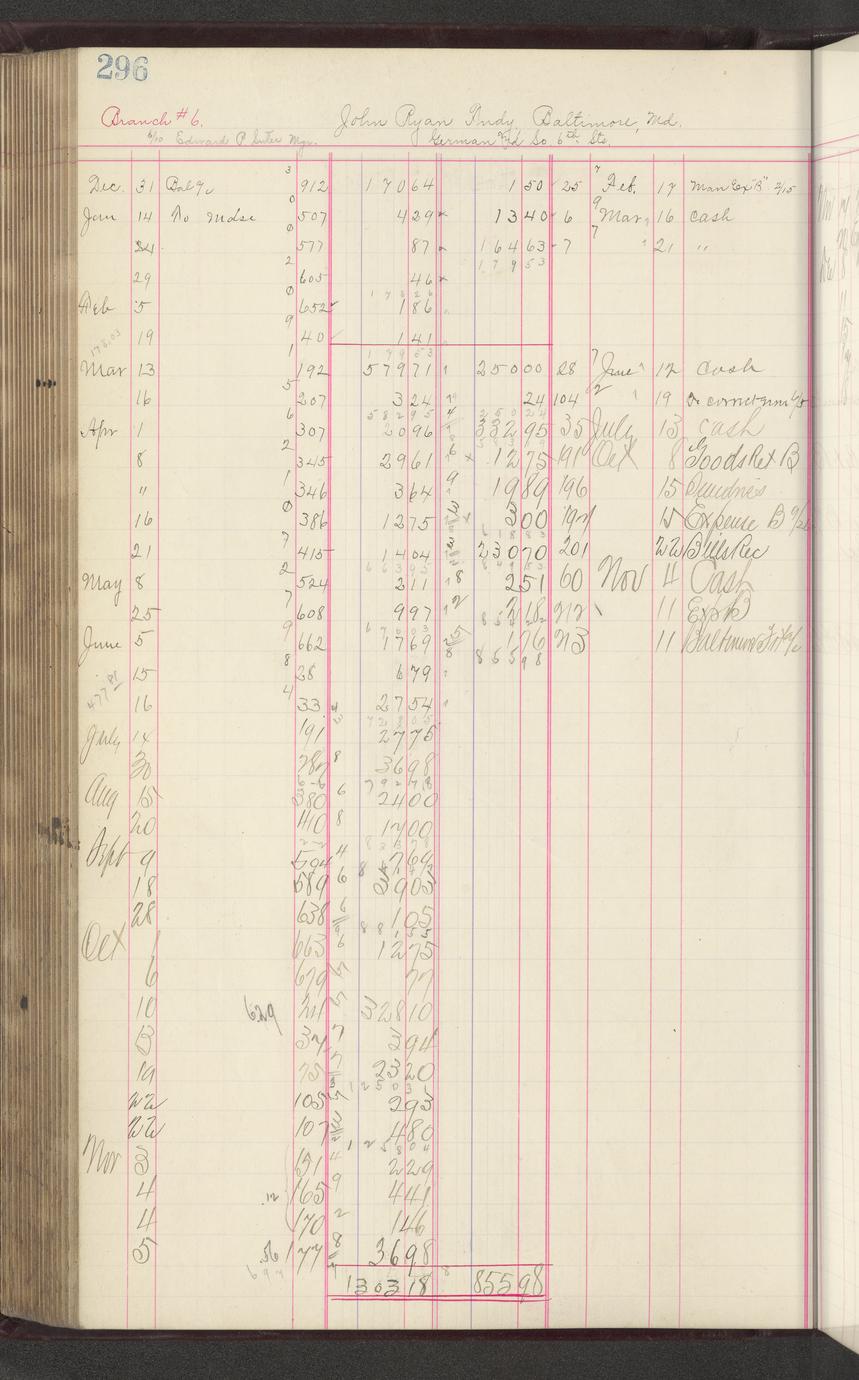 296
Branch #6. John Ryan Indy Baltimore, Md.
c/o Edward P Suter Mgr. German & So. 6th Sts.
Dec. 31 Bal a/c 3 912 17064 150 25 7 Feb. 17 Man Exp "B" 2/15
Jan 14 To Mdse 0 507 429 1340 6 9 Mar 16 cash
24 0 577 87 16463 7 7 " 21 "
17953
29 2 605 46
17626
Feb 5 0 652 186
19 9 40 141
17803 17953
Mar 13 1 192 57971 25000 28 7 June 12 cash
16 5 207 324 24 104 2 " 19 Or correct
58295 25024
Apr 1 6 307 2096 33295 35 July 13 cash
8 2 345 2961 1275 191 Oct 8 Goods Ret B
" 1 346 364 1989 196 15 Sundries
16 0 386 1275 300 197 15 Expense B
21 7 415 1404 23070 201 22 Bills Rec
66395
May 8 2 524 211 251 60 Nov 4 Cash
25 7 608 997 218 212 11 Exp B
67603
June 5 9 662 1769 176 213 11 Baltimore
85598
15 8 28 679
47781
16 4 33 2754
72805
July 14 191 2775
30 287 3698
79278
Aug 15 380 2400
20 410 1700
83378
Sept 9 594 769
18 589 3903
28 638 105
88155
Oct 1 663 1275
6 679 77
10 211 32810
13 37 394
19 75 2320
125031
22 105 293
22 107 480
125804
Nov 3 151 229
4 165 441
4 170 146
5 177 3698
697
130318 85598